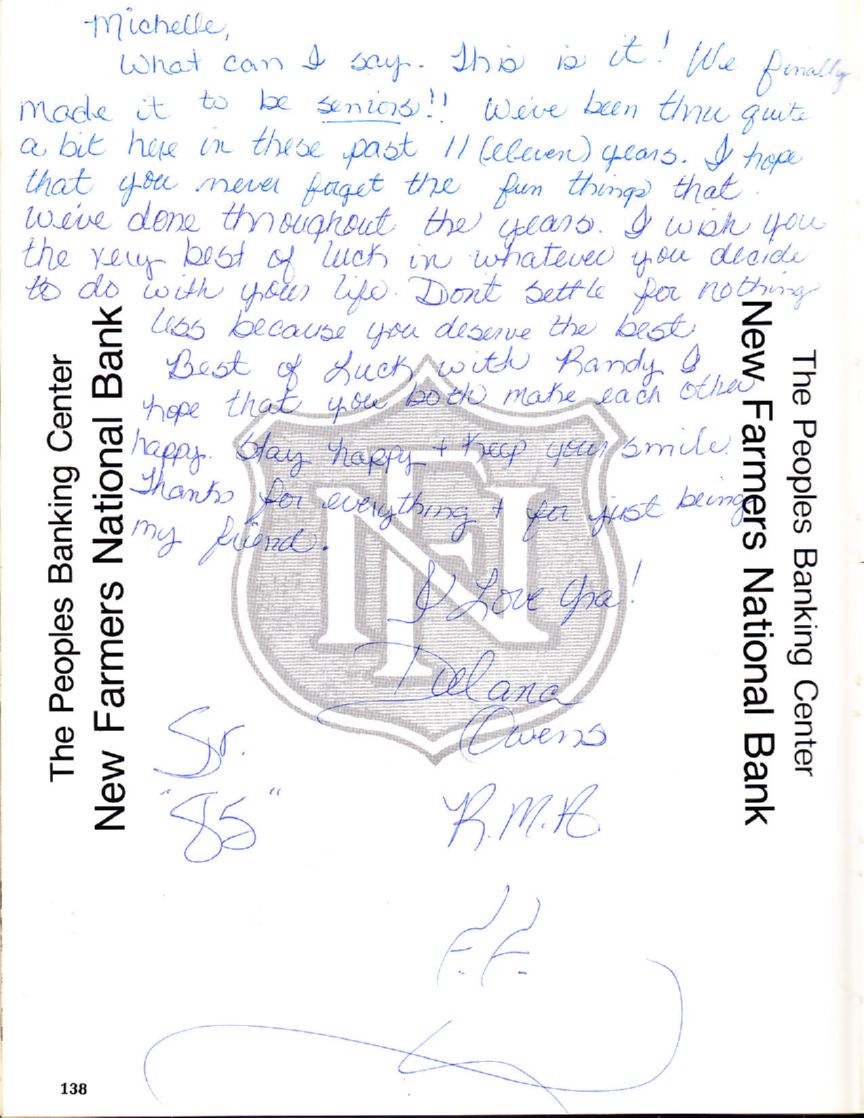 Michelle,
What can I say. This is it! We finally
made it to be seniors!! We've been thru quite
a bit here in these past 11 (eleven) years. I hope
that you never forget the fun things that
we've done throughout the years. I wish you
the very best of luck in whatever you decide
to do with your life. Dont settle for nothing
less because you deserve the best
Best of Luck with Randy I
hope that you both make each other
happy. Stay happy + Keep your smile.
Thanks for everything + for just being
my friend.
I Love Ya!
Delana
Owens
Sr.
"85"
R.M.A.
F.F.
The Peoples Banking Center
New Farmers National Bank
NFN
The Peoples Banking Center
New Farmers National Bank
138